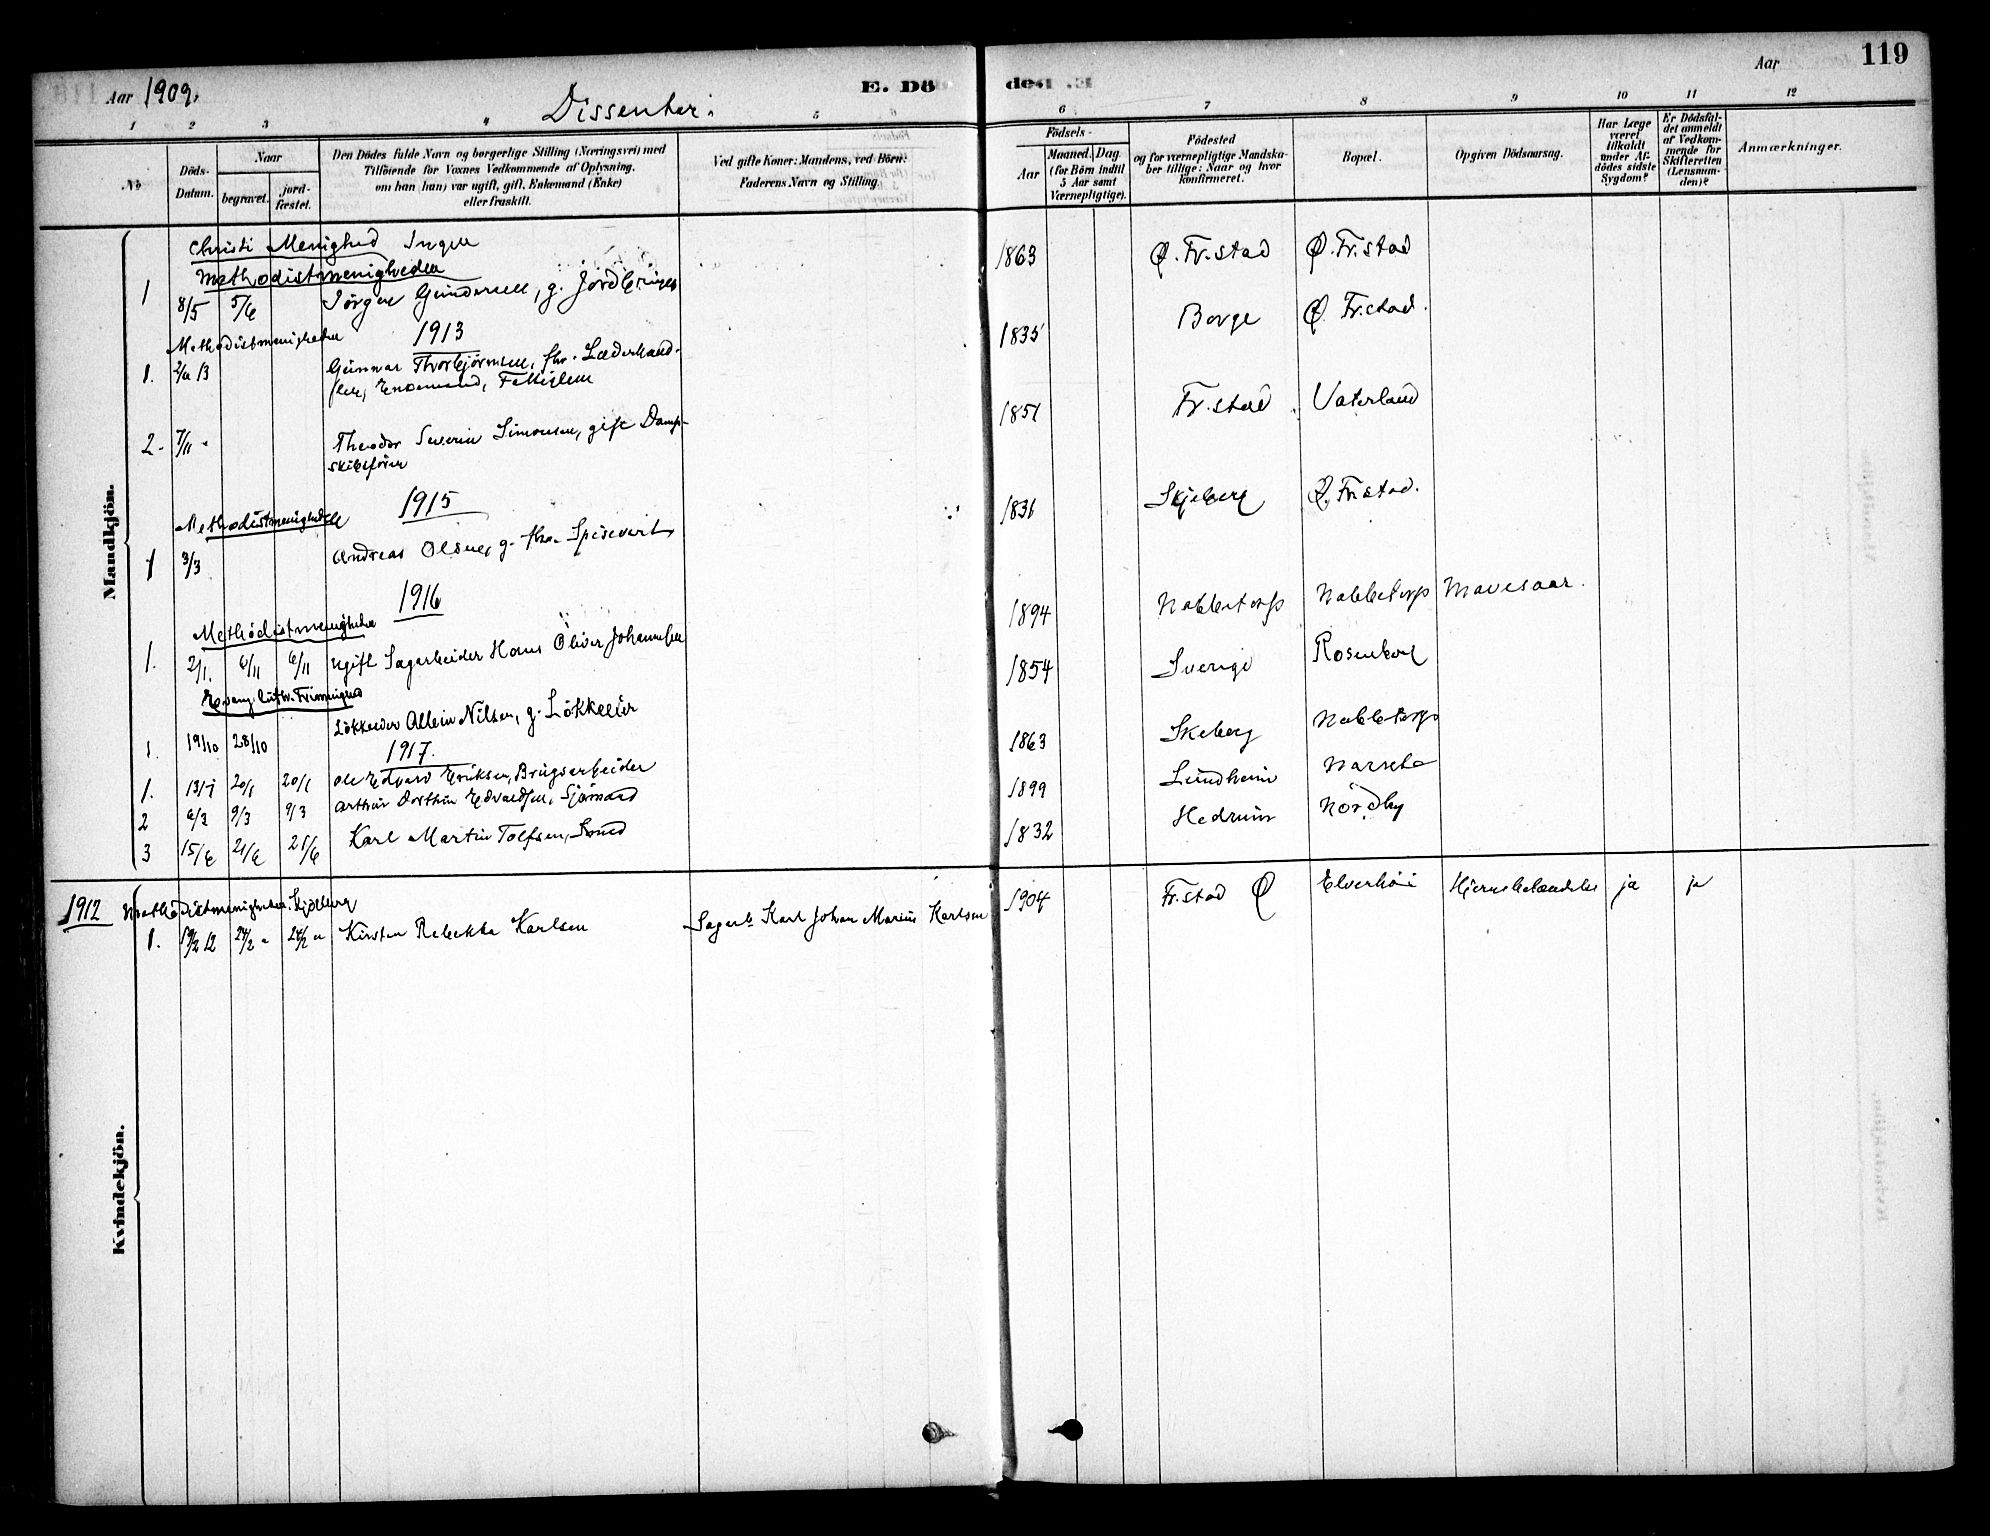 Aar 1909.
Dissenter.
E. Dö
de.
Aar
119
1 2 3 4 5 6 7 8 9 10 11 12
No
Döds-Datum.
Naar
begravet.
jord-fæstet.
Den Dödes fulde Navn og borgerlige Stilling (Næringsvei) med
Tilföiende for Voxnes Vedkommende af Oplysning,
om han (hun) var ugift, gift, Enkemand (Enke)
eller fraskilt.
Ved gifte Koner: Mandens, ved Börn:
Faderens Navn og Stilling.
Födsels-
Aar
Maaned. Dag
(for Börn indtil
5 Aar samt
Værnepligtige).
Födested
og for værnepligtige Mandska-
ber tillige: Naar og hvor
konfirmeret.
Bopæl.
Opgiven Dödsaarsag.
Har Læge
været
tilkaldt
under Af-
dödes sidste
Sygdom?
Er Dödsfal-
det anmeldt
af Vedkom-
mende for
Skifteretten
(Lensman-
den)?
Anmærkninger.
Mandkjön.
Christi Menighed Ingen
Methodistmenigheden
1 8/5 5/6 Jörgen Gundersen, g. 1863 Ø. Fr.stad Ø. Fr.stad
Methodistmenigheden 1913
1. 13 Gunnar Thorbjörnsen, fhv. Læderhand-
ler, Enkemand, Fattiglem 1835 Borge Ø. Fr.stad.
2. 7/11 " Theodor Severin Simonsen, gift Damp-
skibsförer 1851 Fr.stad Vaterland
Methodistmenighed 1915
1 3/3 Andreas Olsen, g. fhv. Spisevert 1831 Skjeberg Ø. Fr.stad.
1916
Methodistmenigheden
1. 2/11. 6/11 6/11 ugift Sagarbeider Hans Oliver Johannesen 1894 Nabbetorp Nabbetorp Mavesaar.
Evang. luth. Frimenighed
1. 19/10 28/10 Nilsen, g. 1854 Sverige Rosenborg
1917.
1. 13/1 20/1 20/1 Ole Edvard Eriksen, Brugsarbeider 1863 Skeberg Nabbetorp
2 6/3 9/3 9/3 Arthur Edvardsen, Sjömand 1899
3 15/6 21/6 21/6 Karl Martin Tolfsen, Smed 1832 Hedrum Nordby
Kvindekjön.
1912 Methodistmenigheden. Skjeberg
1. 19/2 12 24/2 " 24/2 " Kirsten Rebekka Karlsen Sagarb. Karl Johan Marius Karlsen 1904 Fr.stad Ø Elverhöi ja ja